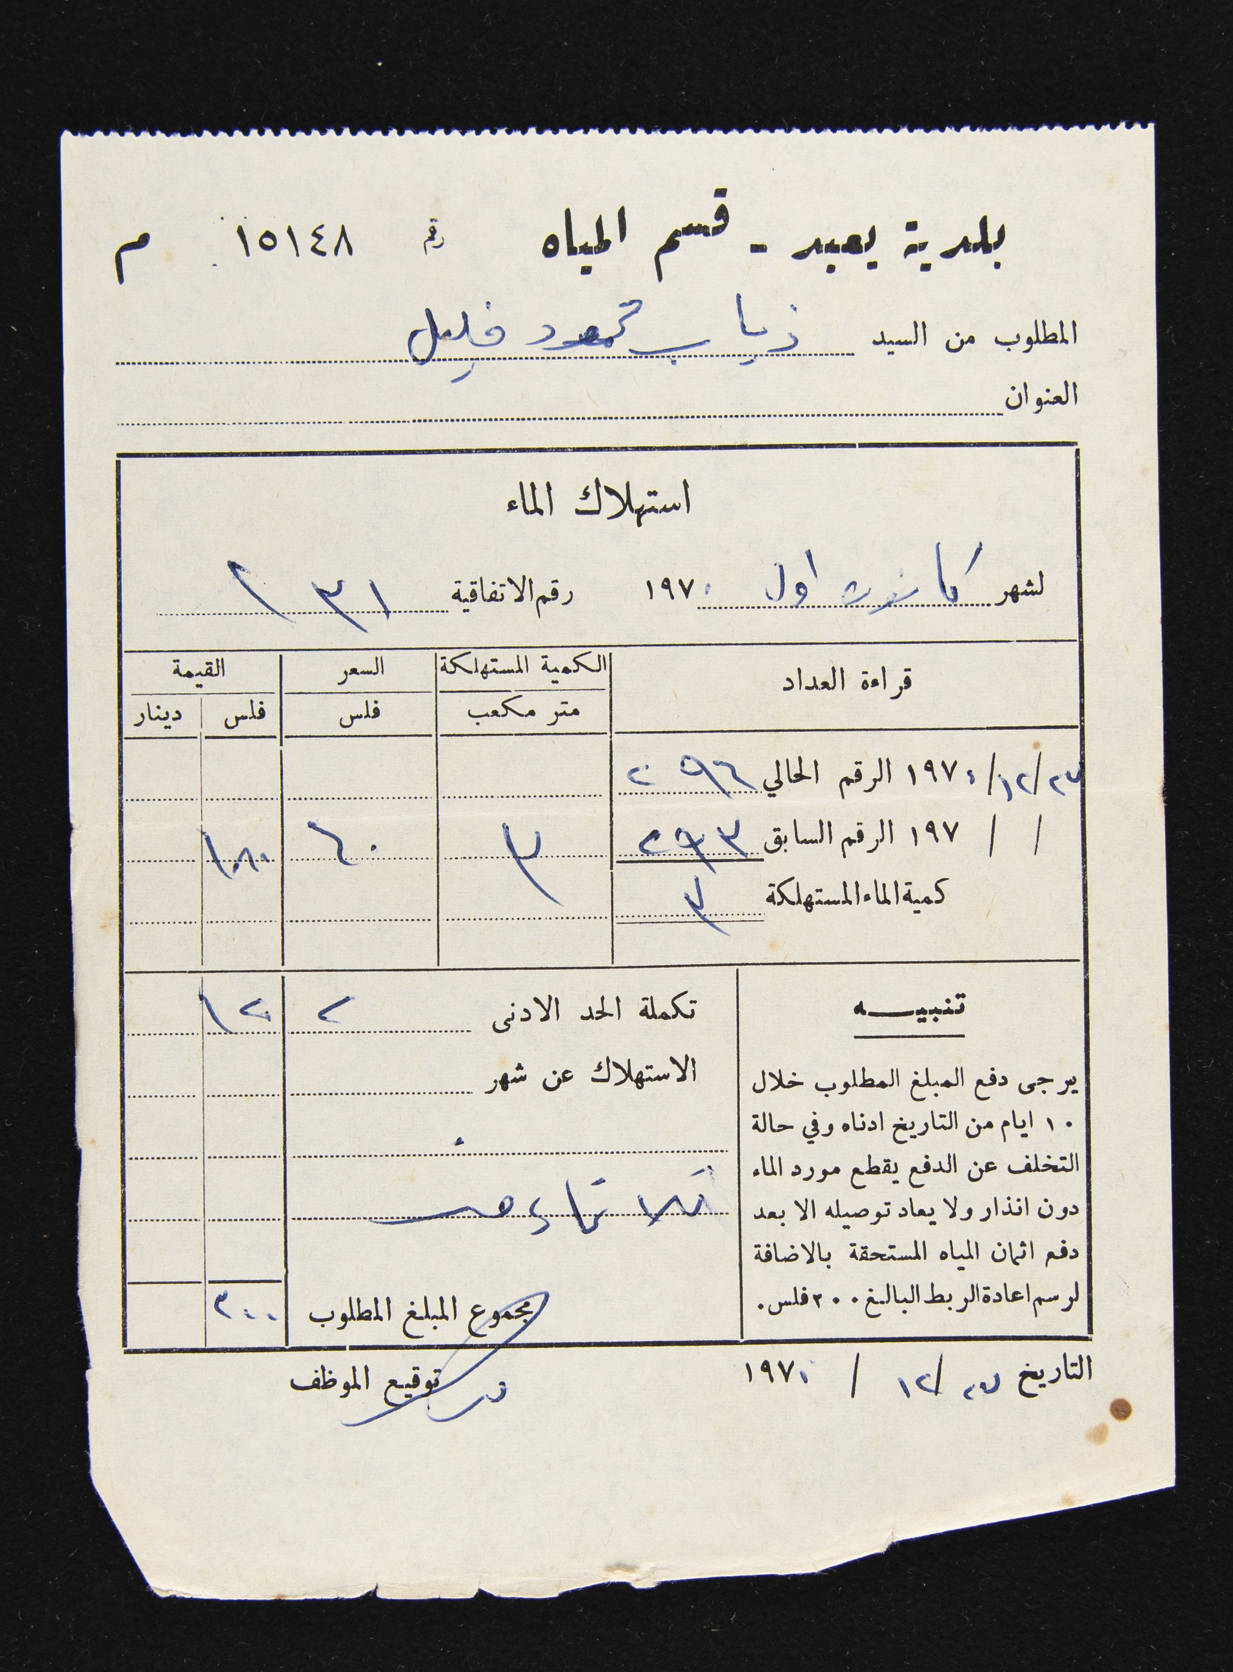 بلدية يعبد - قسم المياه رقم ١٥١٤٨ م
المطلوب من السيد ذياب محمود خليل
العنوان
استهلاك الماء
لشهر كانون اول ١٩٧٠ رقم الاتفاقية ٢٣١
قراءة العداد الكمية المستهلكة السعر القيمة
متر مكعب فلس فلس دينار
٢٧/١٢/١٩٧٠ الرقم الحالي ٢٩٦
/ / ١٩٧ الرقم السابق ٢٩٣ ٣ ٦٠ ١٨٠
كمية الماء المستهلكة ٣
تكملة الحد الادنى ٢ ١٢٠
الاستهلاك عن شهر
ثلاثماية فلس
مجموع المبلغ المطلوب ٣٠٠
تنبيـــه
يرجى دفع المبلغ المطلوب خلال
١٠ ايام من التاريخ ادناه وفي حالة
التخلف عن الدفع يقطع مورد الماء
دون انذار ولا يعاد توصيله الا بعد
دفع اثمان المياه المستحقة بالاضافة
لرسم اعادة الربط البالغ ٢٠٠ فلس.
التاريخ ٢٧/١٢/ ١٩٧٠ توقيع الموظف